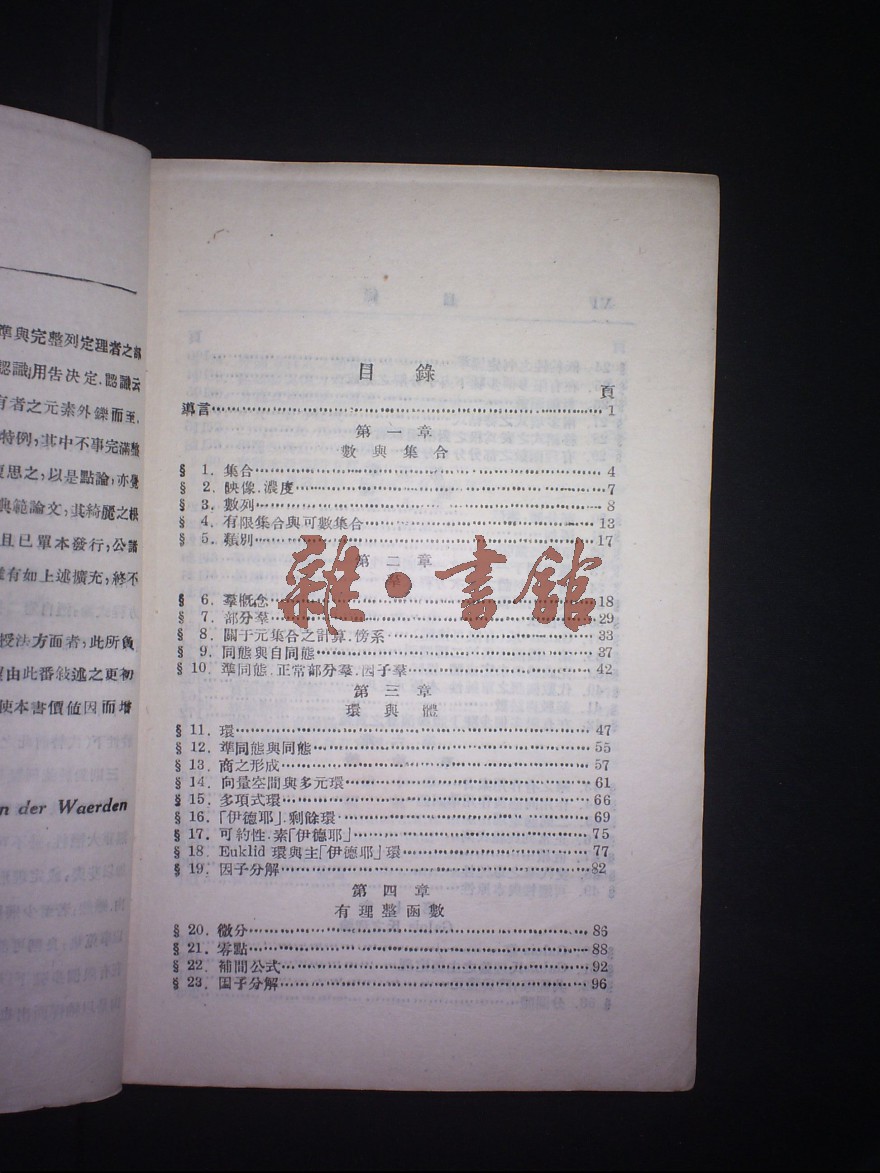 準與完整列定理者之部
認識用告决定.認識云
有者之元素外鑠而至.
特例;其中不事完滿整
復思之,以是點論,亦覺
典範論文,其綺麗之根
且已單本發行;公諸
有如上述擴充,終不
授法方面者;此所負
由此番叙述之更初
使本書價值因而增
n der Waerden
目錄
頁
導言 1
第一章
數與集合
§ 1. 集合 4
§ 2. 映像.濃度 7
§ 3. 數列 8
§ 4. 有限集合與可數集合 13
§ 5. 類別 17
第二章
羣
§ 6. 羣概念 18
§ 7. 部分羣 29
§ 8. 關于元集合之計算.傍系 33
§ 9. 同態與自同態 37
§ 10. 準同態.正常部分羣.因子羣 42
第三章
環與體
§ 11. 環 47
§ 12. 準同態與同態 55
§ 13. 商之形成 57
§ 14. 向量空間與多元環 61
§ 15. 多項式環 66
§ 16. 「伊德耶」.剩餘環 69
§ 17. 可約性.素「伊德耶」 75
§ 18. Euklid 環與主「伊德耶」環 77
§ 19. 因子分解 82
第四章
有理整函數
§ 20. 微分 86
§ 21. 零點 88
§ 22. 補間公式 92
§ 23. 因子分解 96
雜·書館